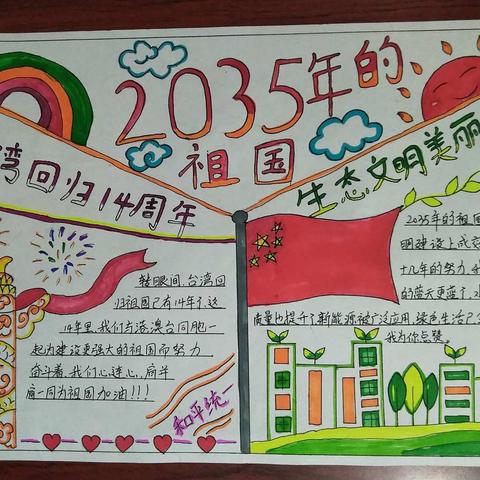 2035年的
祖国
湾回归14周年
转眼间,台湾回
归祖国已有14年了,这
14年里,我们与港澳台同胞一
起为建设更强大的祖国而努力
奋斗着,我们心连心,肩并
肩一同为祖国加油!!!
和平统一
生态文明美丽
2035年的祖国
明建设上成
十几年的努力,
的蓝天更蓝了,水
质量也提升了,新能源被广泛应用,绿色生活已
我为你点赞。